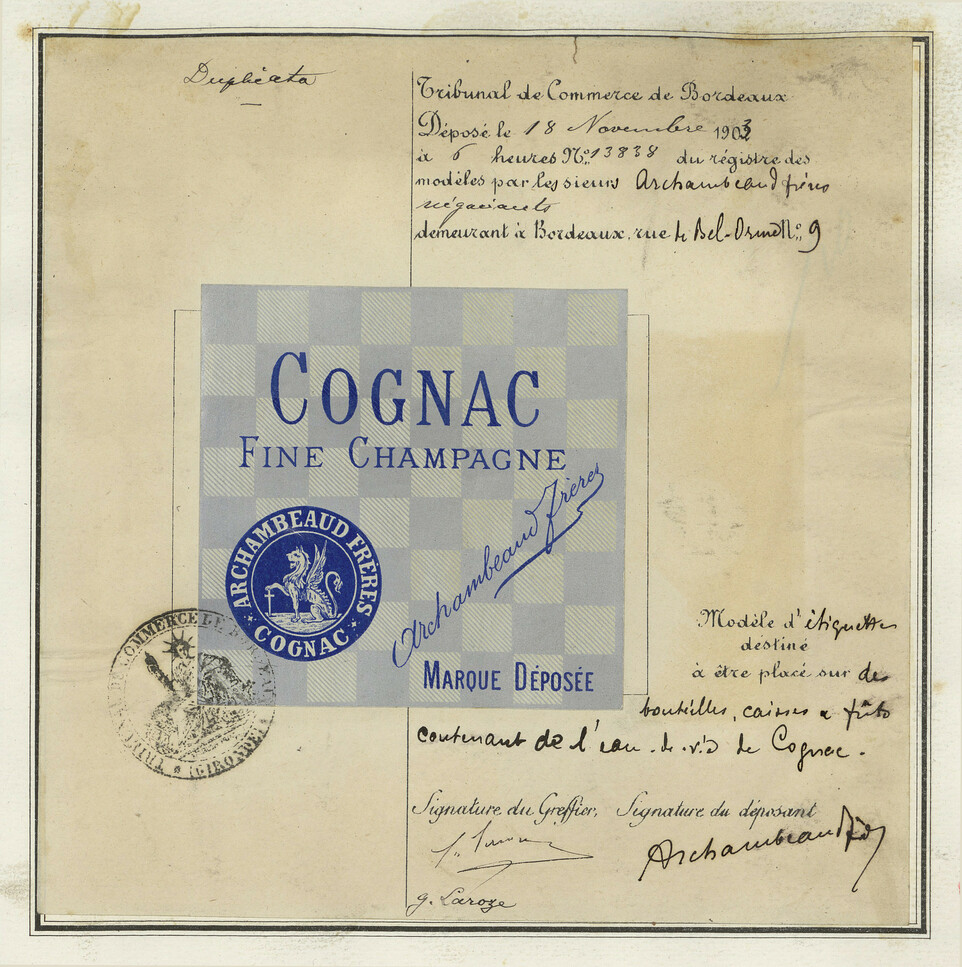 Duplicata
Tribunal de Commerce de Bordeaux
Déposé le 18 Novembre 1903
à 6 heures No. 13838 du régistre des
modèles par les sieurs Archambeaud frères
négociants
demeurant à Bordeaux, rue de Bel-Orme No. 9
COGNAC
FINE CHAMPAGNE
Archambeaud Frères
ARCHAMBEAUD FRERES
COGNAC
MARQUE DÉPOSÉE
TRIBUNAL DE COMMERCE DE BORDEAUX
(GIRONDE)
Modèle d'étiquettes
destiné
à être placé sur des
bouteilles, caisses & fûts
contenant de l'eau-de-vie de Cognac.
Signature du Greffier, Signature du déposant
Archambeaud
g. Laroze